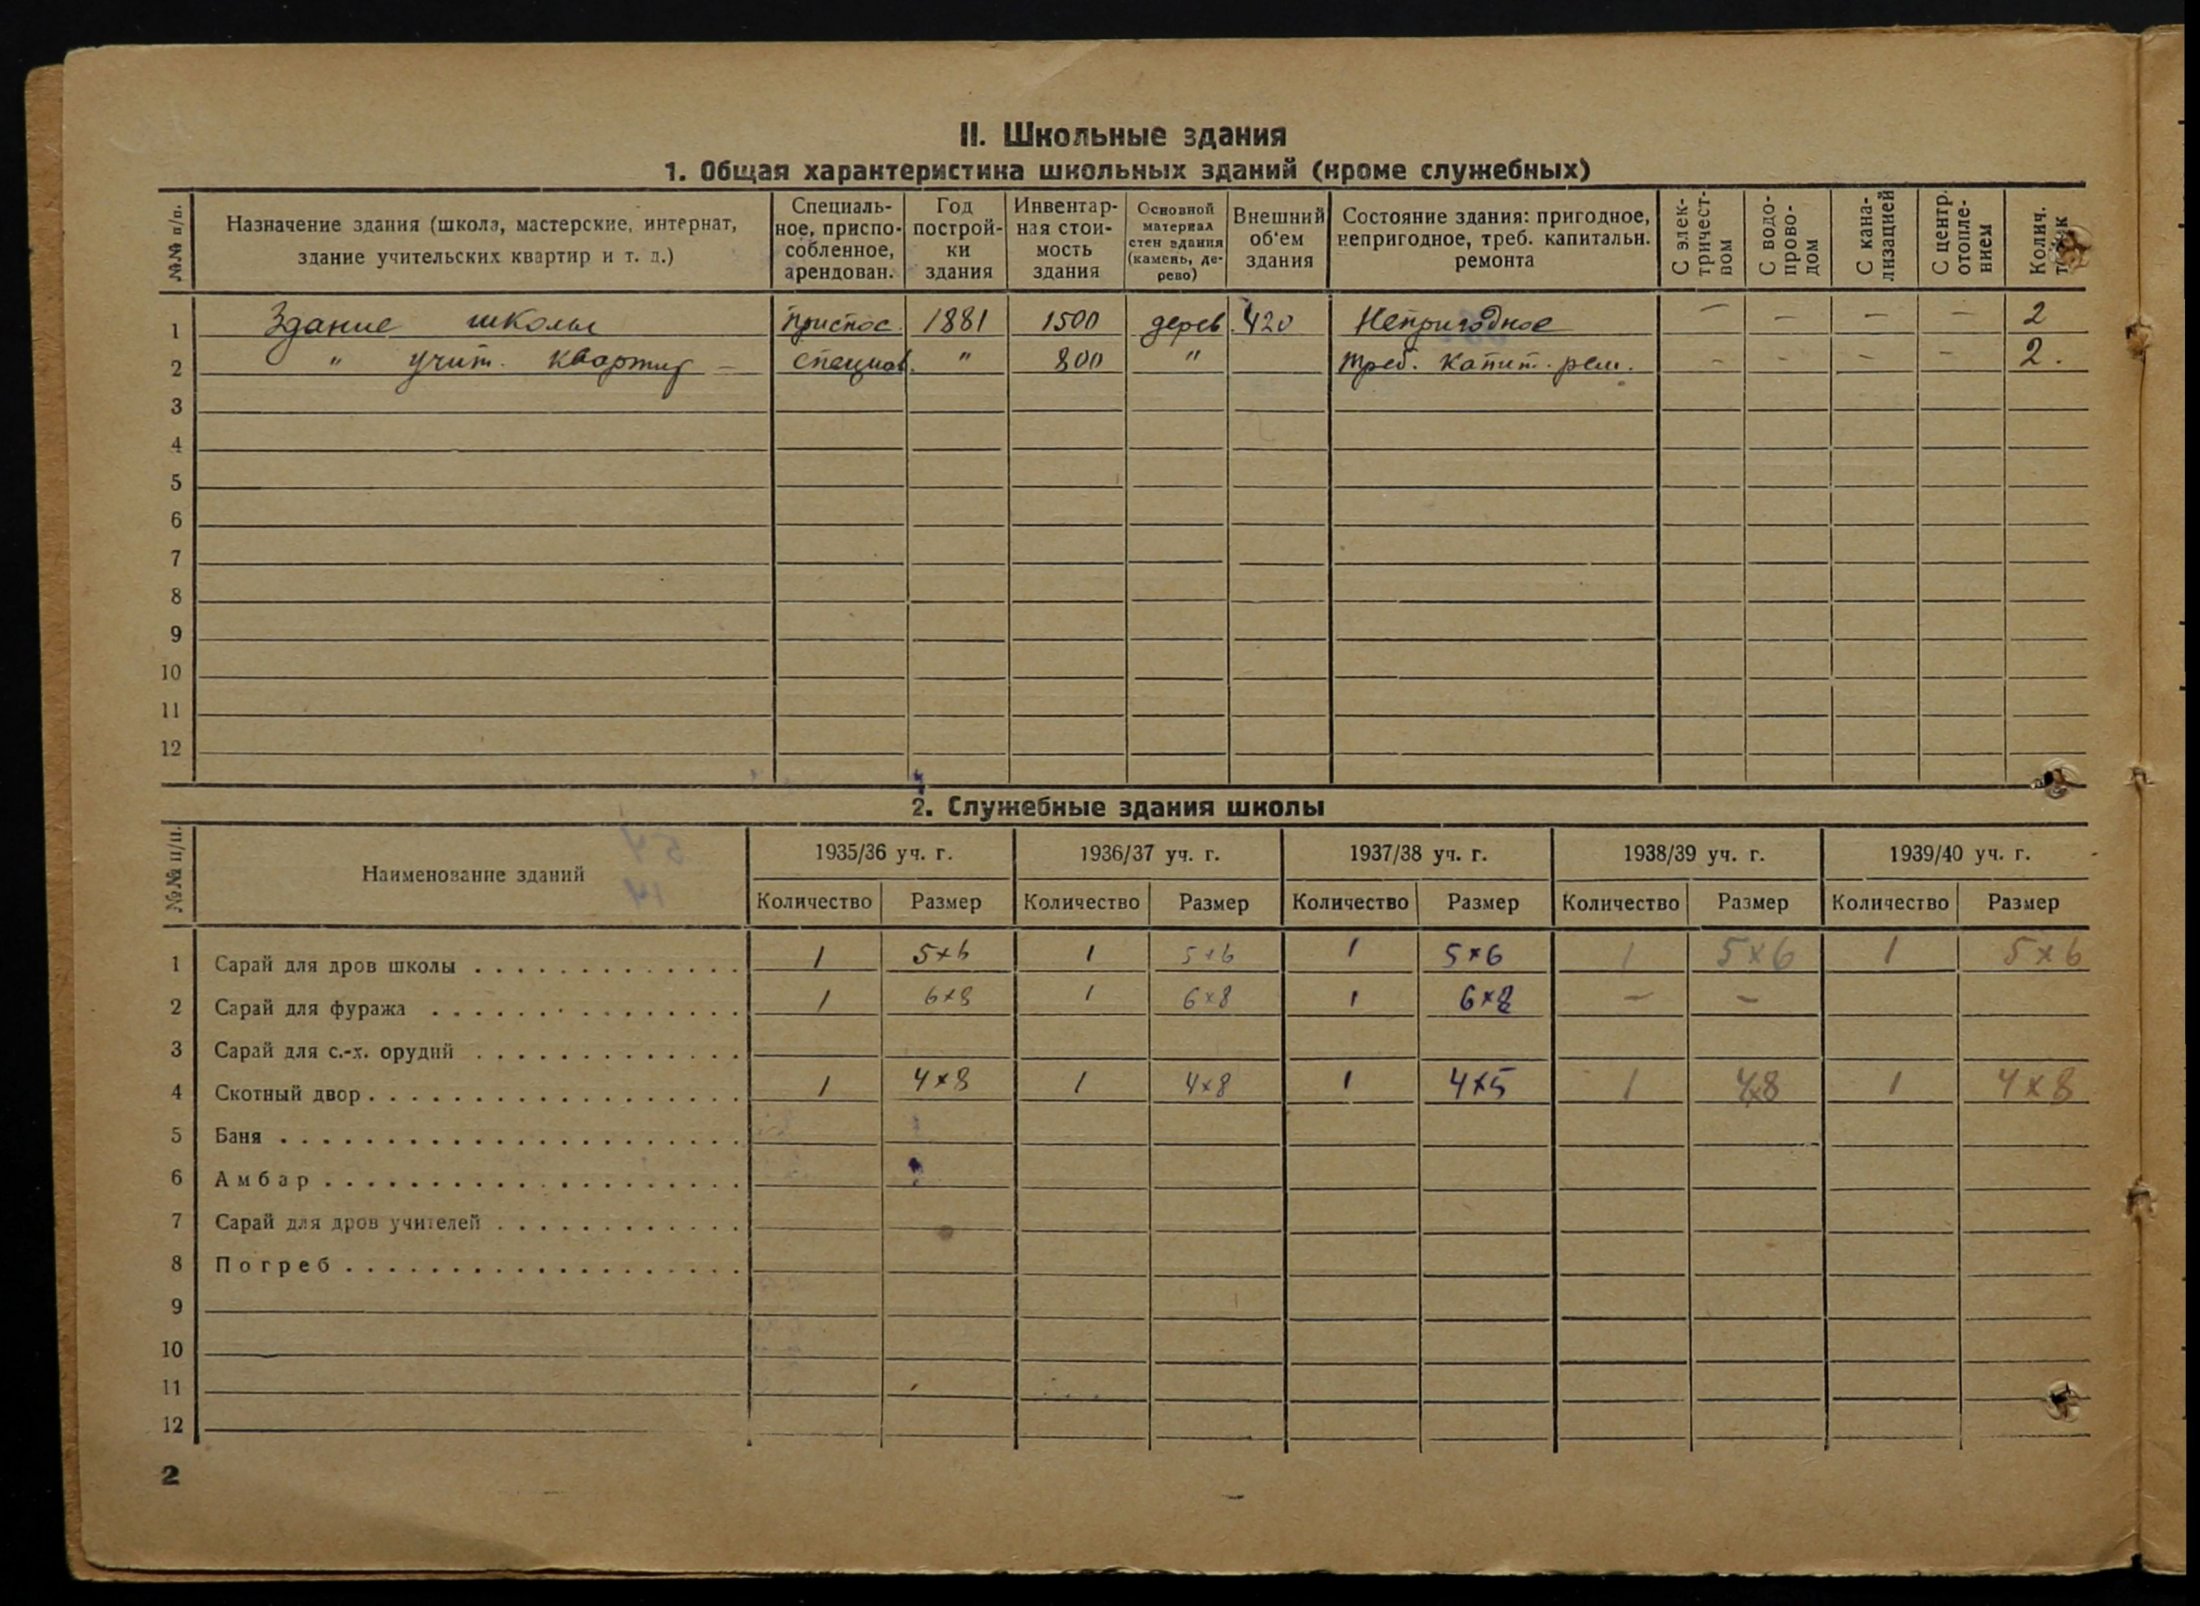 II. Школьные здания
1. Общая характеристика школьных зданий (кроме служебных)
№№ п/п. Назначение здания (школа, мастерские, интернат, здание учительских квартир и т. д.) Специальное, приспособленное, арендован. Год постройки здания Инвентарная стоимость здания Основной материал стен здания (камень, дерево) Внешний об'ем здания Состояние здания: пригодное, непригодное, треб. капитальн. ремонта С электричеством С водопроводом С канализацией С центр. отоплением Колич.
1 Здание школы приспос. 1881 1500 дерев. 420 Непригодное — — — — 2
2 " учит. квартир — специал. " 800 " треб. капит. рем. - - - - 2.
3
4
5
6
7
8
9
10
11
12
2. Служебные здания школы
№№ п/п. Наименование зданий 1935/36 уч. г. 1936/37 уч. г. 1937/38 уч. г. 1938/39 уч. г. 1939/40 уч. г.
Количество Размер Количество Размер Количество Размер Количество Размер Количество Размер
1 Сарай для дров школы 1 5×6 1 5×6 1 5×6 1 5×6 1 5×6
2 Сарай для фуража 1 6×8 1 6×8 1 6×8 — —
3 Сарай для с.-х. орудий
4 Скотный двор 1 4×8 1 4×8 1 4×5 1 4×8 1 4×8
5 Баня
6 Амбар
7 Сарай для дров учителей
8 Погреб
9
10
11
12
2